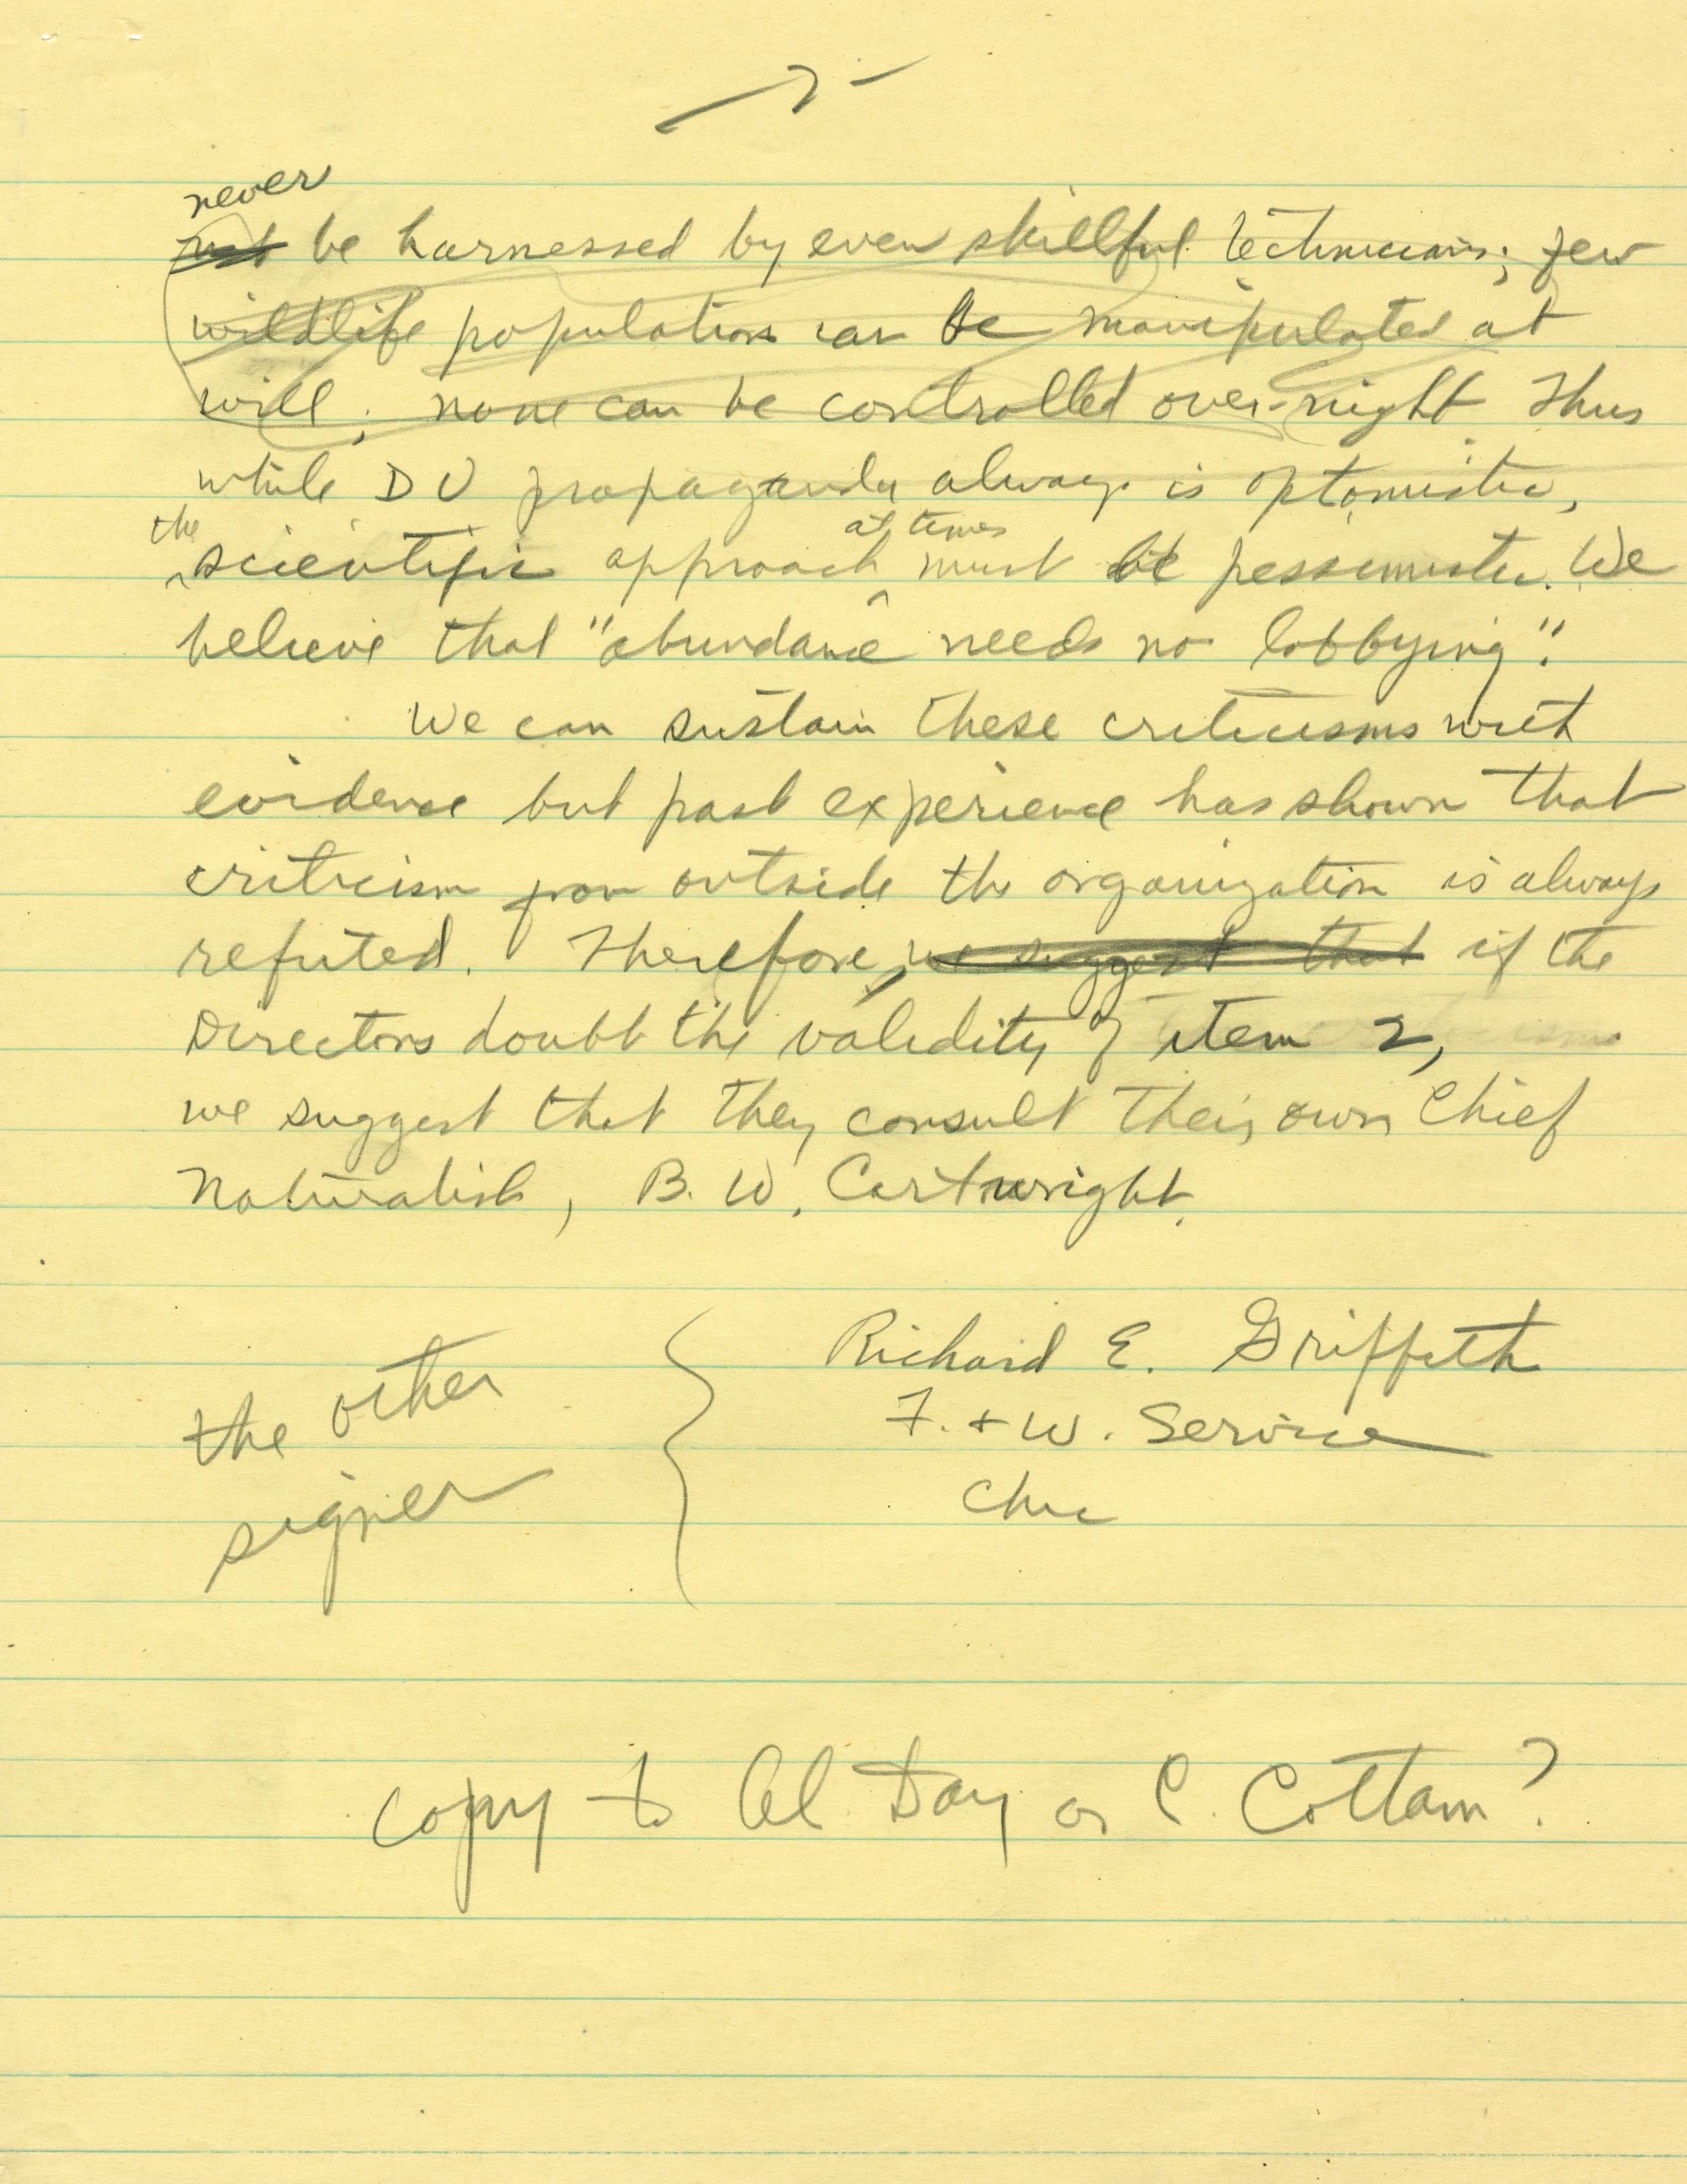 - 7 -
never
not be harnessed by even skillful technicians; few
wildlife populations can be manipulated at
will; none can be controlled over-night Thus
while DU propaganda always is optomistic,
the
at times
scientific approach must be pessimistic. We
believe that "abundance needs no lobbying".
We can sustain these criticisms with
evidence but past experience has shown that
criticism from outside the organization is always
refuted. Therefore, we suggest that if the
Directors doubt the validity of item 2,
we suggest that they consult their own Chief
Naturalist, B. W. Cartwright.
Richard E. Griffith
F. + W. Service
the other
signer
copy to Al Day or C. Cottam?